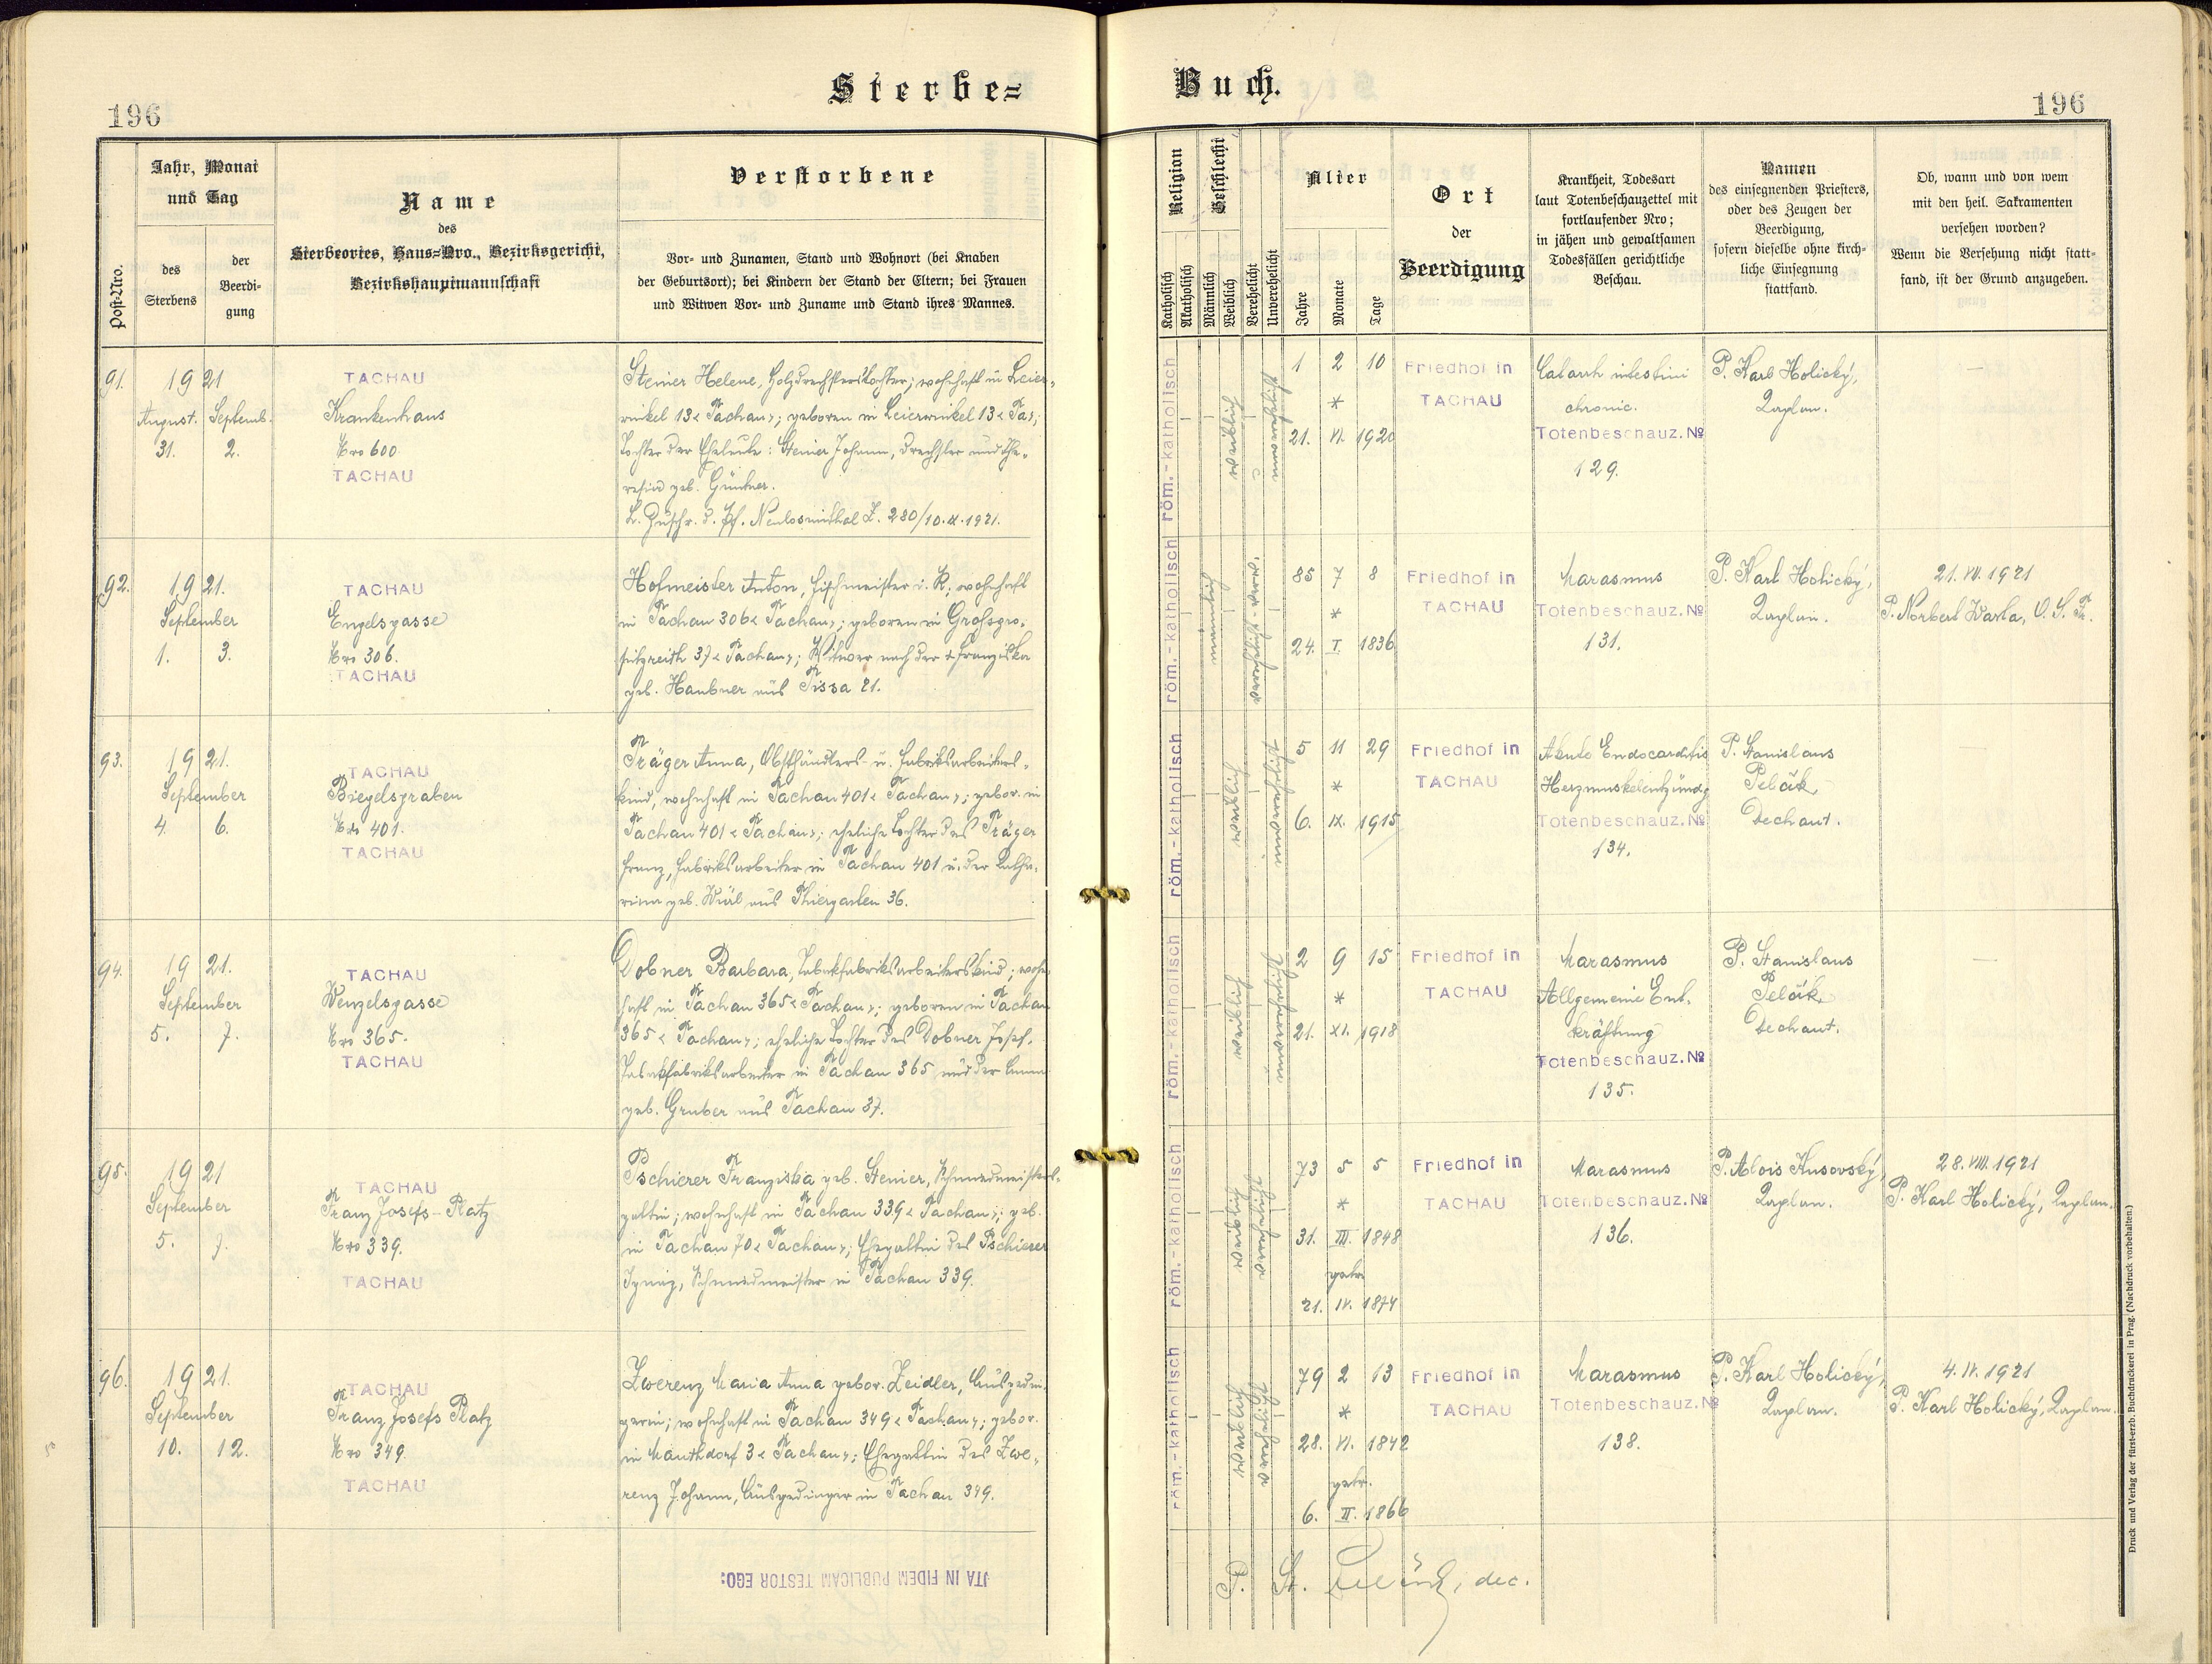 Sterbe=
Buch.
196
196
Post-Nro.
Jahr, Monat
und Tag
des
Sterbens
der
Beerdi-
gung
Name
des
Sterbeortes, Haus=Nro., Bezirksgericht,
Bezirkshauptmannschaft
Verstorbene
Vor- und Zunamen, Stand und Wohnort (bei Knaben
der Geburtsort); bei Kindern der Stand der Eltern; bei Frauen
und Witwen Vor- und Zuname und Stand ihres Mannes.
Religion
Katholisch
Akatholisch
Geschlecht
Männlich
Weiblich
Verehelicht
Unverehelicht
Alter
Jahre
Monate
Tage
Ort
der
Beerdigung
Krankheit, Todesart
laut Totenbeschauzettel mit
fortlaufender Nro;
in jähen und gewaltsamen
Todesfällen gerichtliche
Beschau.
Namen
des einsegnenden Priesters,
oder des Zeugen der
Beerdigung,
sofern dieselbe ohne kirch-
liche Einsegnung
stattfand.
Ob, wann und von wem
mit den heil. Sakramenten
versehen worden?
Wenn die Versehung nicht statt-
fand, ist der Grund anzugeben.
91. 1921
August. Septemb.
31. 2.
TACHAU
Krankenhaus
Nro 600
TACHAU
Steiner Helene, Holzdrechslerstochter; wohnhaft in Leier-
winkel 13 < Tachau >; geboren in Leierwinkel 13 < Ta >;
Tochter der Eheleute: Steiner Johann, Drechsler und The-
resia geb. Güntner.
L. Zuschr. d. Pf. Neulosimthal Z. 280/10.IX.1921.
röm.-katholisch
weiblich
1 2 10
*
21. VI. 1920
Friedhof in
TACHAU
Catarrh intestini
chronic.
Totenbeschauz. №
129.
P. Karl Holický,
Kaplan.
—
92. 1921.
September
1. 3.
TACHAU
Engelgasse
Nro 306.
TACHAU
Hofmeister Anton, Tischmeister i. R.; wohnhaft
in Tachau 306 < Tachau >; geboren in Grossgro-
fitzreith 37 < Tachau >; Witwer nach der + Franziska
geb. Haubner aus Tissa 21.
röm.-katholisch
männlich
85 7 8
*
24. I. 1836
Friedhof in
TACHAU
Marasmus
Totenbeschauz. №
131.
P. Karl Holický,
Kaplan.
21. VII. 1921
P. Norbert Warta, O. S. Fr.
93. 1921.
September
4. 6.
TACHAU
Biegelgraben
Nro 401.
TACHAU
Träger Anna, Obsthändlers- u. Fabriksarbeiters-
kind, wohnhaft in Tachau 401 < Tachau >; gebor. in
Tachau 401 < Tachau >; eheliche Tochter des Träger
Franz, Fabriksarbeiter in Tachau 401 u. der Katha-
rina geb. Würl aus Thiergarten 36.
röm.-katholisch
weiblich
5 11 29
*
6. IX. 1915
Friedhof in
TACHAU
Akute Endocarditis
Herzmuskelentzündg
Totenbeschauz. №
134.
P. Stanislaus
Pelák
Dechant.
94. 1921.
September
5. 7.
TACHAU
Wenzelsgasse
Nro 365.
TACHAU
Dobner Barbara, Tabakfabriksarbeiterskind; wohn-
haft in Tachau 365 < Tachau >; geboren in Tachau
365 < Tachau >; eheliche Tochter des Dobner Josef,
Tabakfabriksarbeiter in Tachau 365 und der Anna
geb. Gruber aus Tachau 37.
röm.-katholisch
weiblich
2 9 15
*
21. XI. 1918
Friedhof in
TACHAU
Marasmus
Allgemeine Ent-
kräftung
Totenbeschauz. №
135.
P. Stanislaus
Pelák
Dechant.
—
95. 1921
September
5. 7.
TACHAU
Franz Josefs-Platz
Nro 339.
TACHAU
Pschierer Franziska geb. Steiner, Schmiedmeisters-
gattin; wohnhaft in Tachau 339 < Tachau >; geb.
in Tachau 70 < Tachau >; Ehegattin des Pschierer
Ignaz, Schmiedmeister in Tachau 339.
röm.-katholisch
weiblich
verehelicht
73 5 5
*
31. III. 1848
getr.
21. IV. 1874
Friedhof in
TACHAU
Marasmus
Totenbeschauz. №
136.
P. Alois Husovský,
Kaplan.
28. VIII. 1921
P. Karl Holický, Kaplan.
96. 1921.
September
10. 12.
TACHAU
Franz Josefs Platz
Nro 349.
TACHAU
Zwerenz Maria Anna gebor. Zeidler, Ausgedin-
gerin; wohnhaft in Tachau 349 < Tachau >; gebor.
in Mauthdorf 3 < Tachau >; Ehegattin des Zwe-
renz Johann, Ausgedinger in Tachau 349.
röm.-katholisch
weiblich
verehelicht
79 2 13
*
28. VI. 1842
getr.
6. II. 1866
Friedhof in
TACHAU
Marasmus
Totenbeschauz. №
138.
P. Karl Holický,
Kaplan.
4. IX. 1921
P. Karl Holický, Kaplan.
ITA IN FIDEM PUBLICAM TESTOR EGO:
P. St. Pelák, dec.
Druck und Verlag der fürst-erzb. Buchdruckerei in Prag. (Nachdruck vorbehalten.)